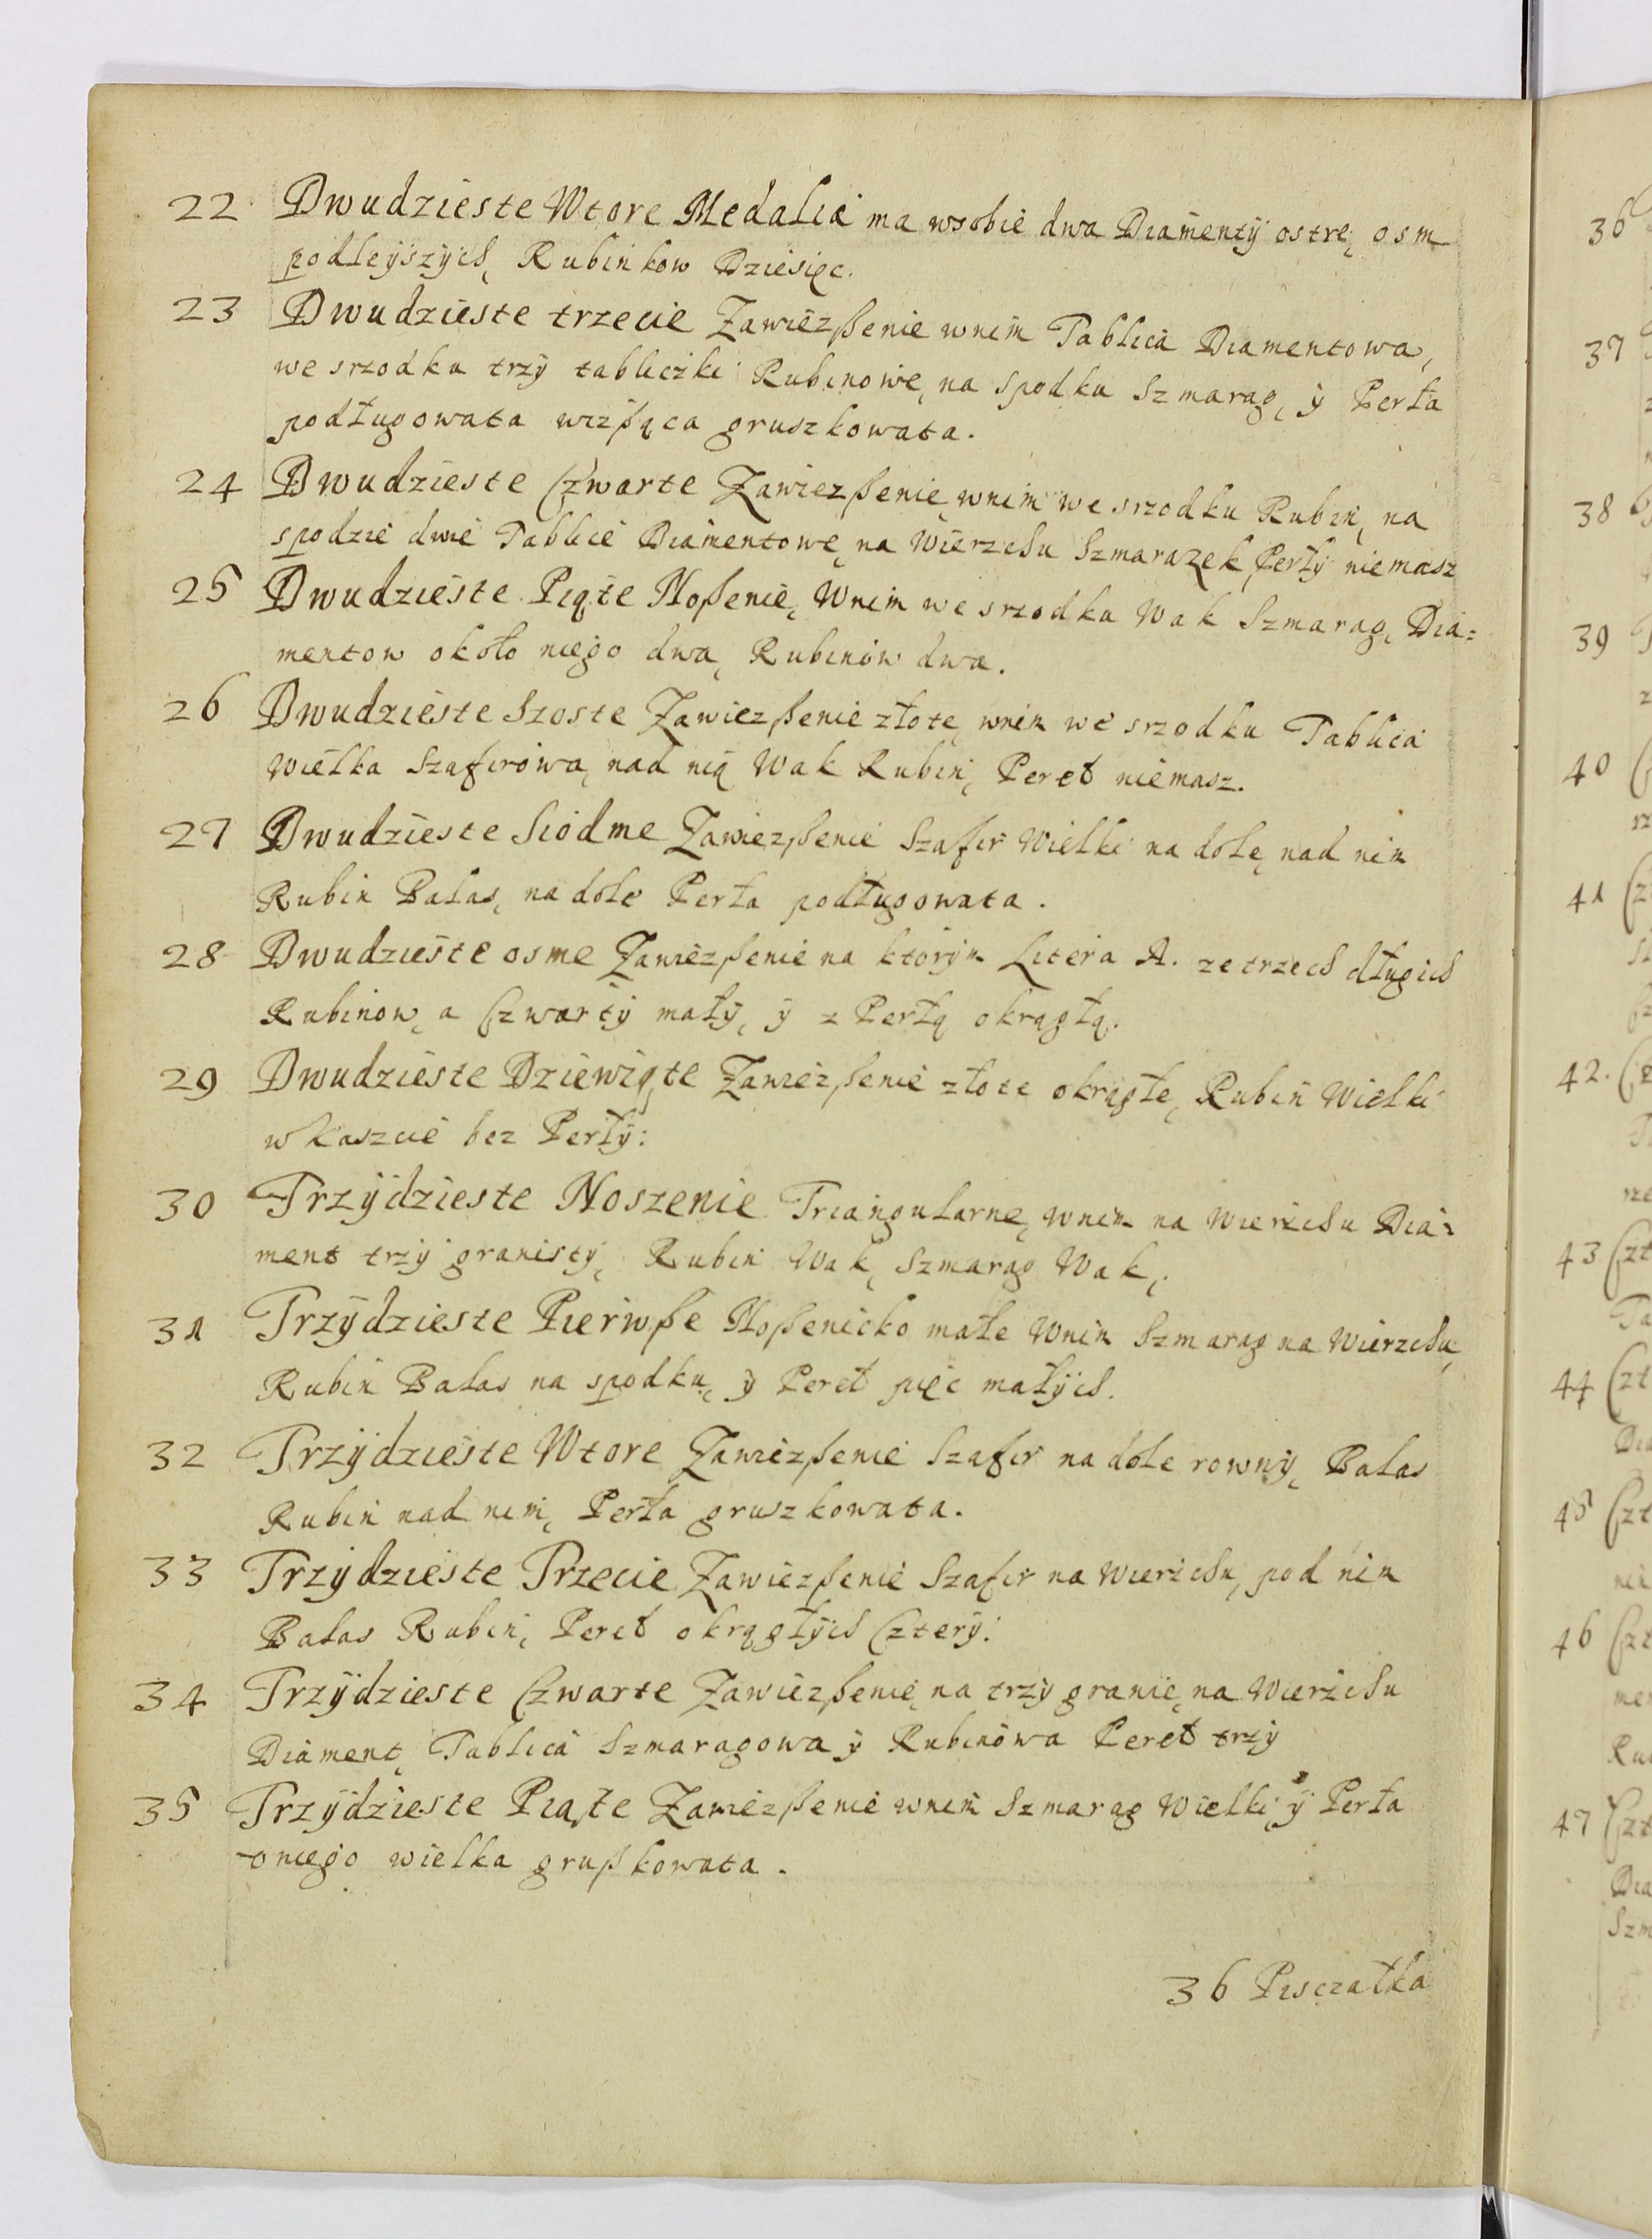 22 Dwudzieste Wtore Medalia ma wsobie dwa Diamenty ostre, osm
podleyszych, Rubinkow Dziesięc.
23 Dwudzieste trzecie Zawiezßenie wnim Tablica Diamentowa,
we srzodku trzy tabliczki Rubinowe, na spodku Szmarag, y Perła
podługowata wizßąca gruszkowata.
24 Dwudzieste Czwarte Zawiezßenie, wnim we srzodku Rubin, na
spodzie dwie Tablice Diamentowe, na Wierzchu Szmarazek, Perły niemasz
25 Dwudzieste Piąte Noßenie, Wnim we srzodku Wak Szmarag, Dia=
mentow około niego dwa, Rubinow dwa.
26 Dwudzieste Szoste Zawiezßenie złote, wnim we srzodku Tablica
Wielka Szafirowa, nad nią Wak Rubin, Pereł niemasz.
27 Dwudzieste Siodme Zawiezßenie Szafir Wielki na dole, nad nim
Rubin Balas, na dole Perła podługowata.
28 Dwudzieste osme Zawiezßenie na ktorym Litera A. ze trzech długich
Rubinow, a Czwarty mały, y z Perłą okrągłą.
29 Dwudzieste Dziewiąte Zawiezßenie złote okrągłe, Rubin Wielki
w Kaszcie bez Perły:
30 Trzydzieste Noszenie Triangularne, wnim na Wierzchu Dia=
ment trzy granisty, Rubin Wak, Szmarag Wak,.
31 Trzydzieste Pierwße Noßenicko małe Wnim Szmarag na Wierzchu,
Rubin Balas na spodku, y Pereł pięc małych.
32 Trzydzieste Wtore Zawiezßenie Szafir na dole rowny, Balas
Rubin nad nim, Perła gruszkowata.
33 Trzydzieste Trzecie Zawiezßenie Szafir na Wierzchu, pod nim
Balas Rubin, Pereł okrągłych Cztery.
34 Trzydzieste Czwarte Zawiezßenie, na trzy granie, na Wierzchu
Diament, Tablica Szmaragowa y Rubinowa Pereł trzy
35 Trzydzieste Piąte Zawiezßenie wnim Szmarag Wielki, y Perła
oniego wielka grußkowata.
36 Pisczałka
36
37
38
39
40
41
42.
43 Czt
44 Czt
45 Czt
46 Czt
47 Czt